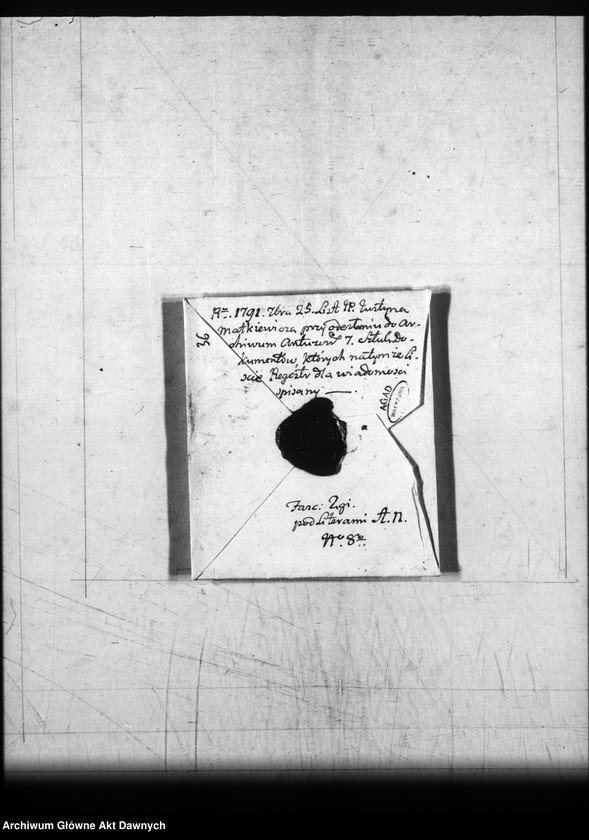 Rzu. 1791. 7bra 25. List JP. Justyna
Matkiewicza przy odesłaniu do Ar-
chiwum 7. Sztuk Do-
kumentów, których na tymże li-
ście Regestr dla wiadomości
spisany —.
36
AGAD
Fasc: 2gi.
pod Literami A. N.
No 8vo
Archiwum Główne Akt Dawnych